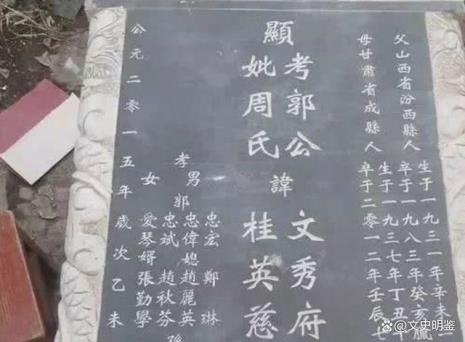 父山西省汾西縣人
生于一九三一年辛未二
卒于一九八三年癸亥臘
母甘肅省成縣人
生于一九三七年丁丑十
卒于二零一二年壬辰七
顯
考郭公
妣周氏
諱
文秀府
桂英慈
孝
男
女
郭
忠宏 鄭琳
忠偉媳趙麗英
忠斌 趙秋芬
愛琴婿張勤學
孫
公元二零一五年歲次乙未
@文史明鉴